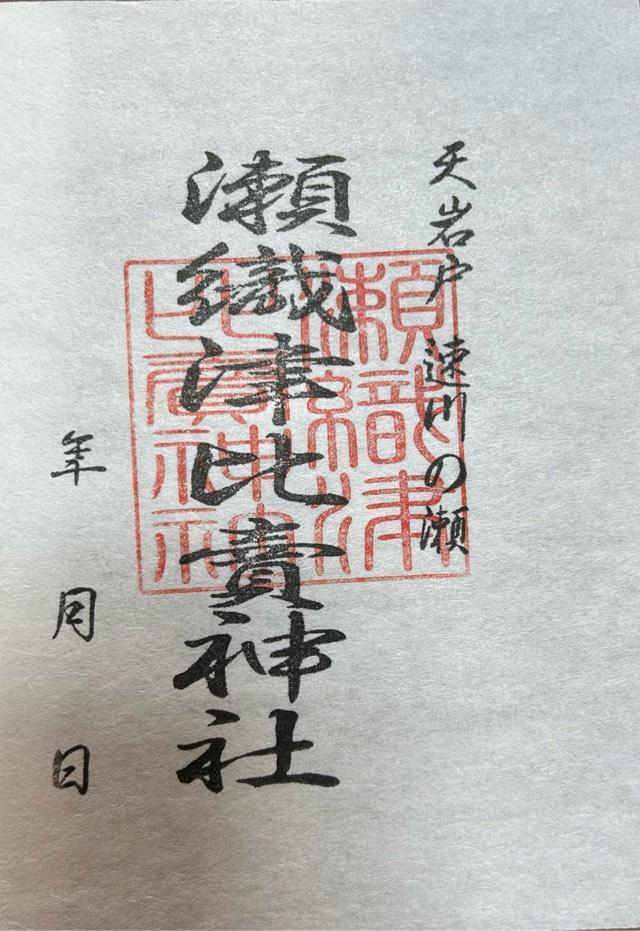 天岩戸 速川の瀬
瀬織津比賣神社
年 月 日
瀬織津
比賣神社